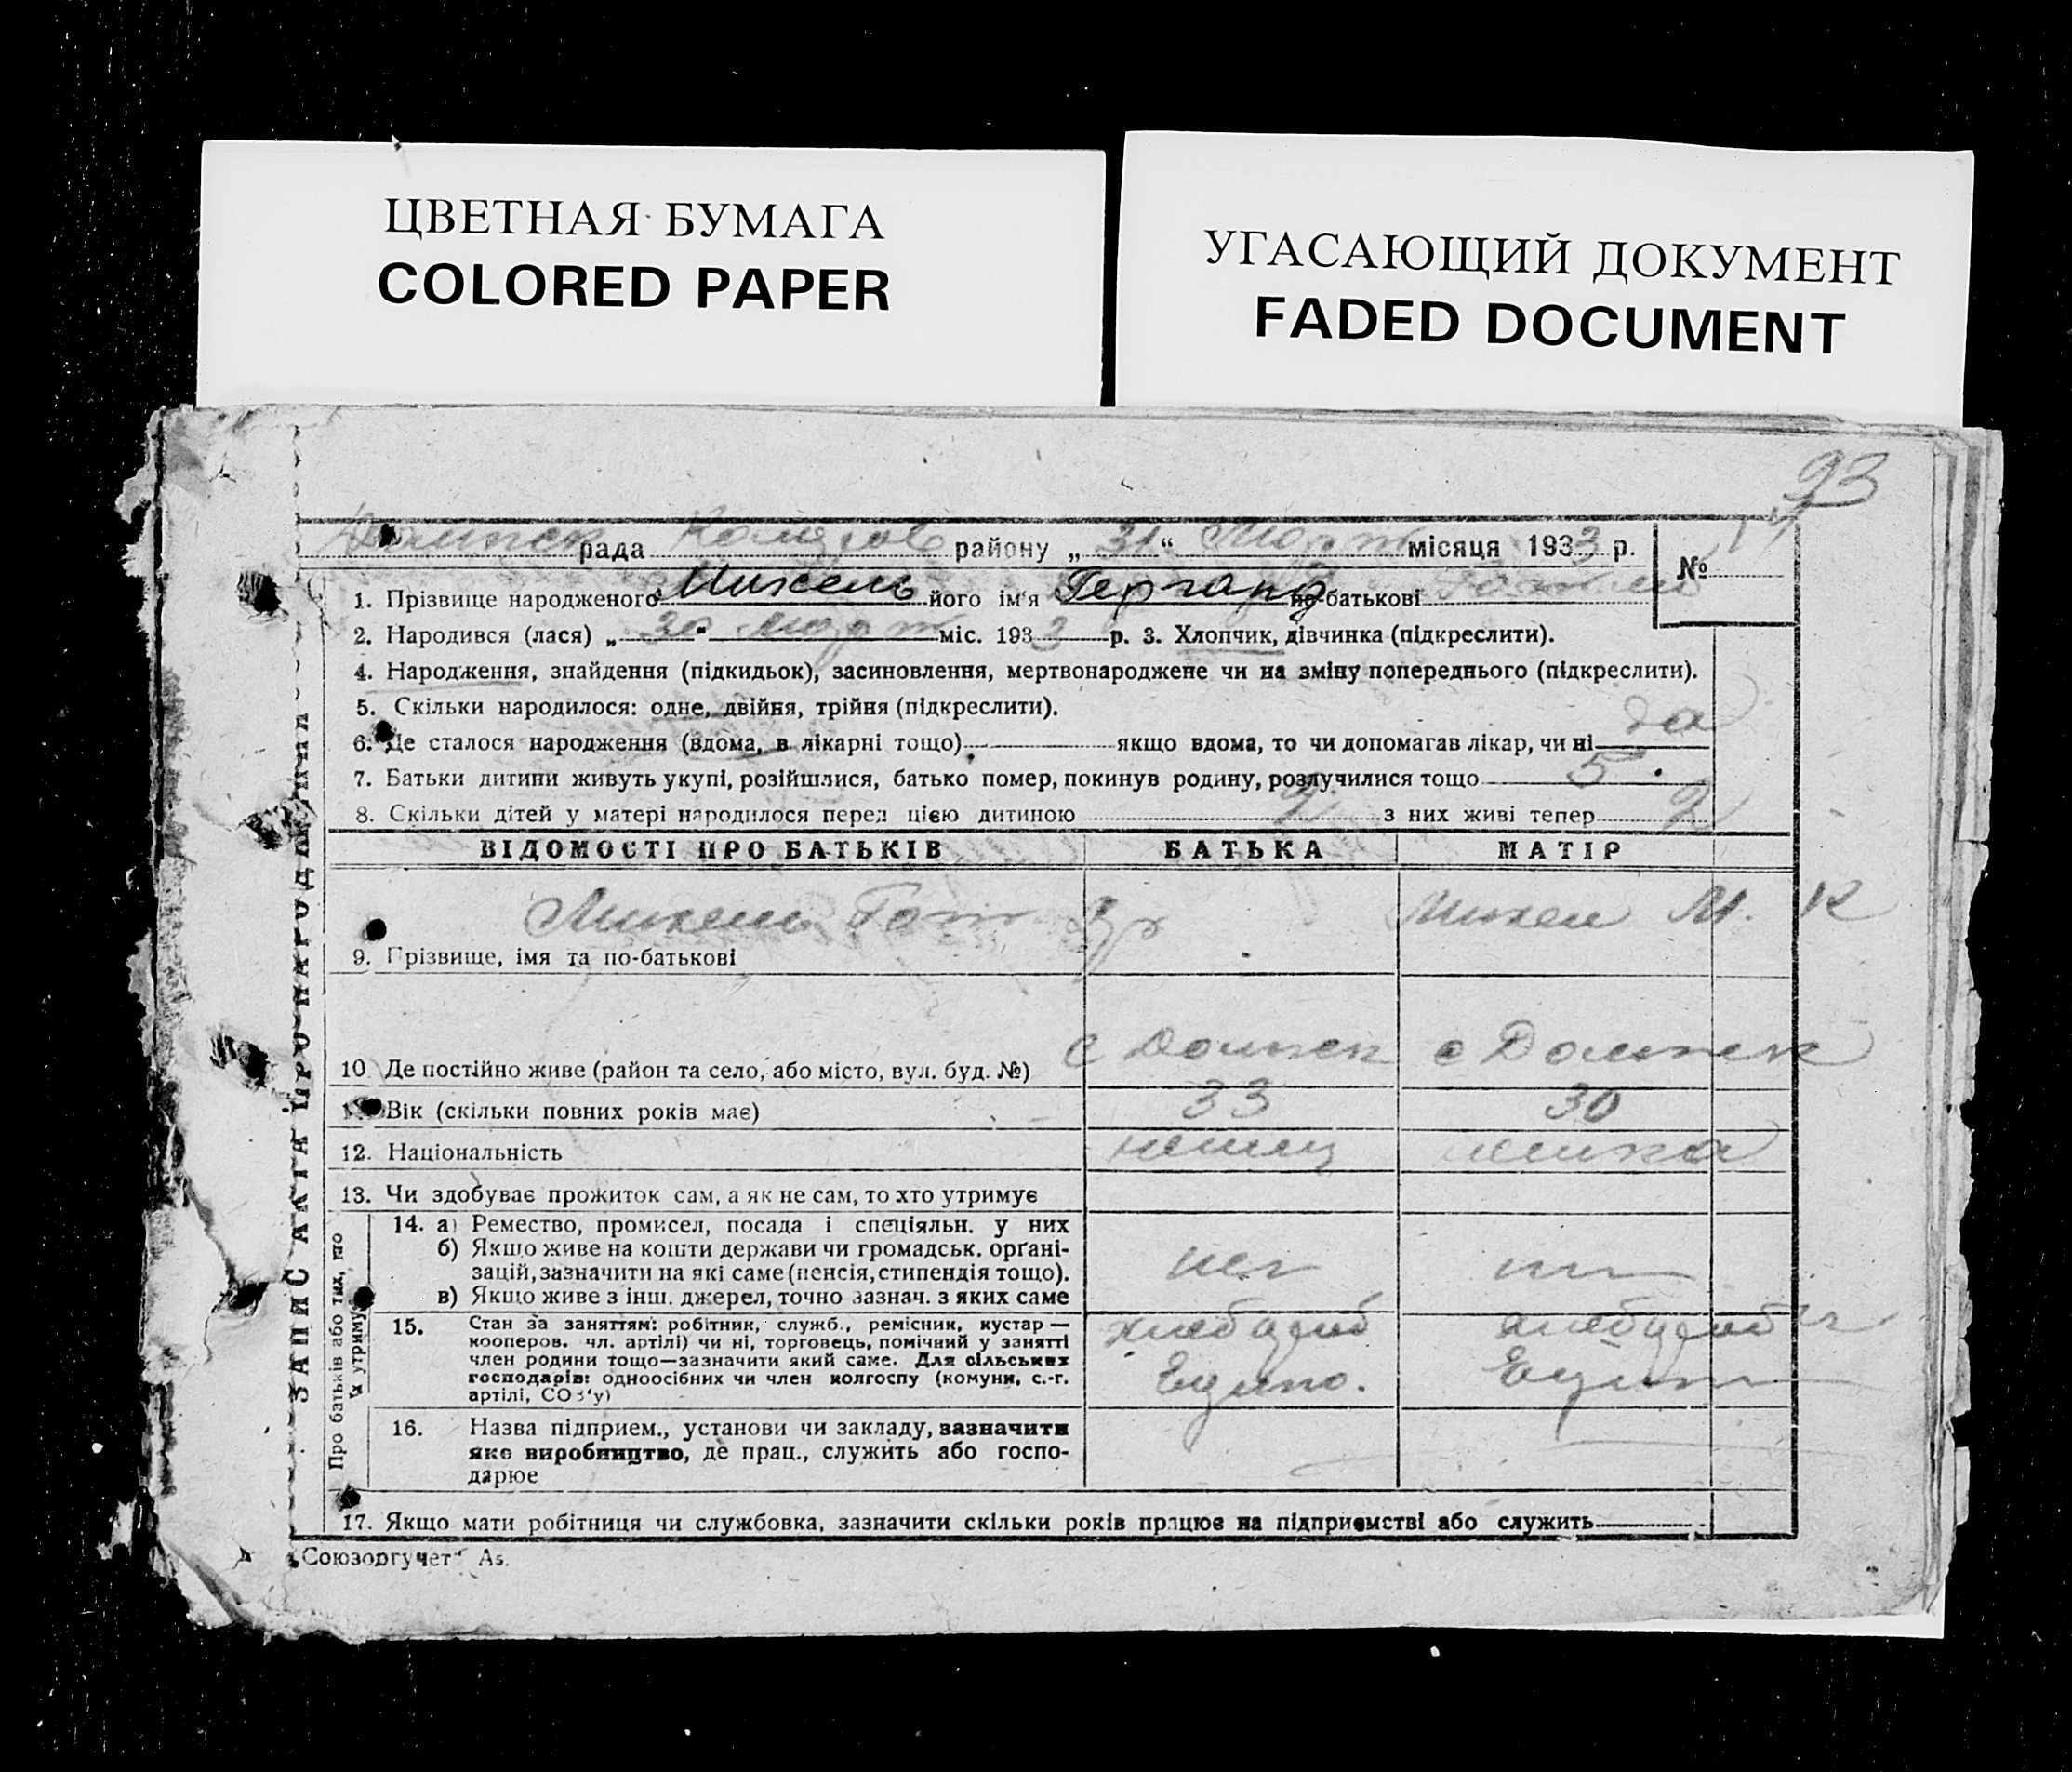 ЦВЕТНАЯ БУМАГА
COLORED PAPER
УГАСАЮЩИЙ ДОКУМЕНТ
FADED DOCUMENT
93
рада района „31“ Март місяця 1933 р.
№
1. Прізвище народженого Михель його ім'я Гергард по-батькові
2. Народився (лася) „30“ март міс. 1933 р. 3. Хлопчик, дівчинка (підкреслити).
4. Народження, знайдення (підкидьок), засиновлення, мертвонароджене чи на зміну попереднього (підкреслити).
5. Скільки народилося: одне, двійня, трійня (підкреслити).
6. Де сталося народження (вдома, в лікарні тощо) якщо вдома, то чи допомагав лікар, чи ні да
7. Батьки дитини живуть укупі, розійшлися, батько помер, покинув родину, розлучилися тощо 5.
8. Скільки дітей у матері народилося перед цією дитиною 2 з них живі тепер 2
ВІДОМОСТІ ПРО БАТЬКІВ БАТЬКА МАТІР
Михель Гот Михел М. К
9. Прізвище, імя та по-батькові
10. Де постійно живе (район та село, або місто, вул. буд. №) с с
Вік (скільки повних років має) 33 30
12. Національність немец немка
13. Чи здобуває прожиток сам, а як не сам, то хто утримує
14. а) Ремество, промисел, посада і спеціяльн. у них
б) Якщо живе на кошти держави чи громадськ. орґані-
зацій, зазначити на які саме (пенсія, стипендія тощо). нет
в) Якщо живе з інш. джерел, точно зазнач. з яких саме
15. Стан за заняттям: робітник, служб., ремісник, кустар —
кооперов. чл. артілі) чи ні, торговець, помічний у занятті
член родини тощо—зазначити який саме. Для сільських
господарів: одноосібних чи член колгоспу (комуни, с.-г.
артілі, СОЗ'у) хлебороб
16. Назва підприєм., установи чи закладу, зазначити
яке виробництво, де прац., служить або госпо-
дарює
17. Якщо мати робітниця чи службовка, зазначити скільки років працює на підприємстві або служить
„Союзоргучет“ As.
ЗАПИС АКТА ПРО НАРОДЖЕННЯ
Про батьків або тих, хто
їх утримує